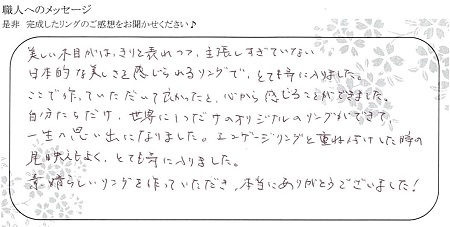 職人へのメッセージ
是非 完成したリングのご感想をお聞かせください♪
美しい木目がはっきりと表れつつ、主張しすぎていない
日本的な美しさを感じられるリングで、とても気に入りました。
ここで作っていただいて良かったと、心から感じることができました。
自分たちだけ、世界に1つだけのオリジナルのリングができて
一生の思い出になりました。エンゲージリングと重ね付けした時の
見映えもよく、とても気に入りました。
素晴らしいリングを作っていただき、本当にありがとうございました！